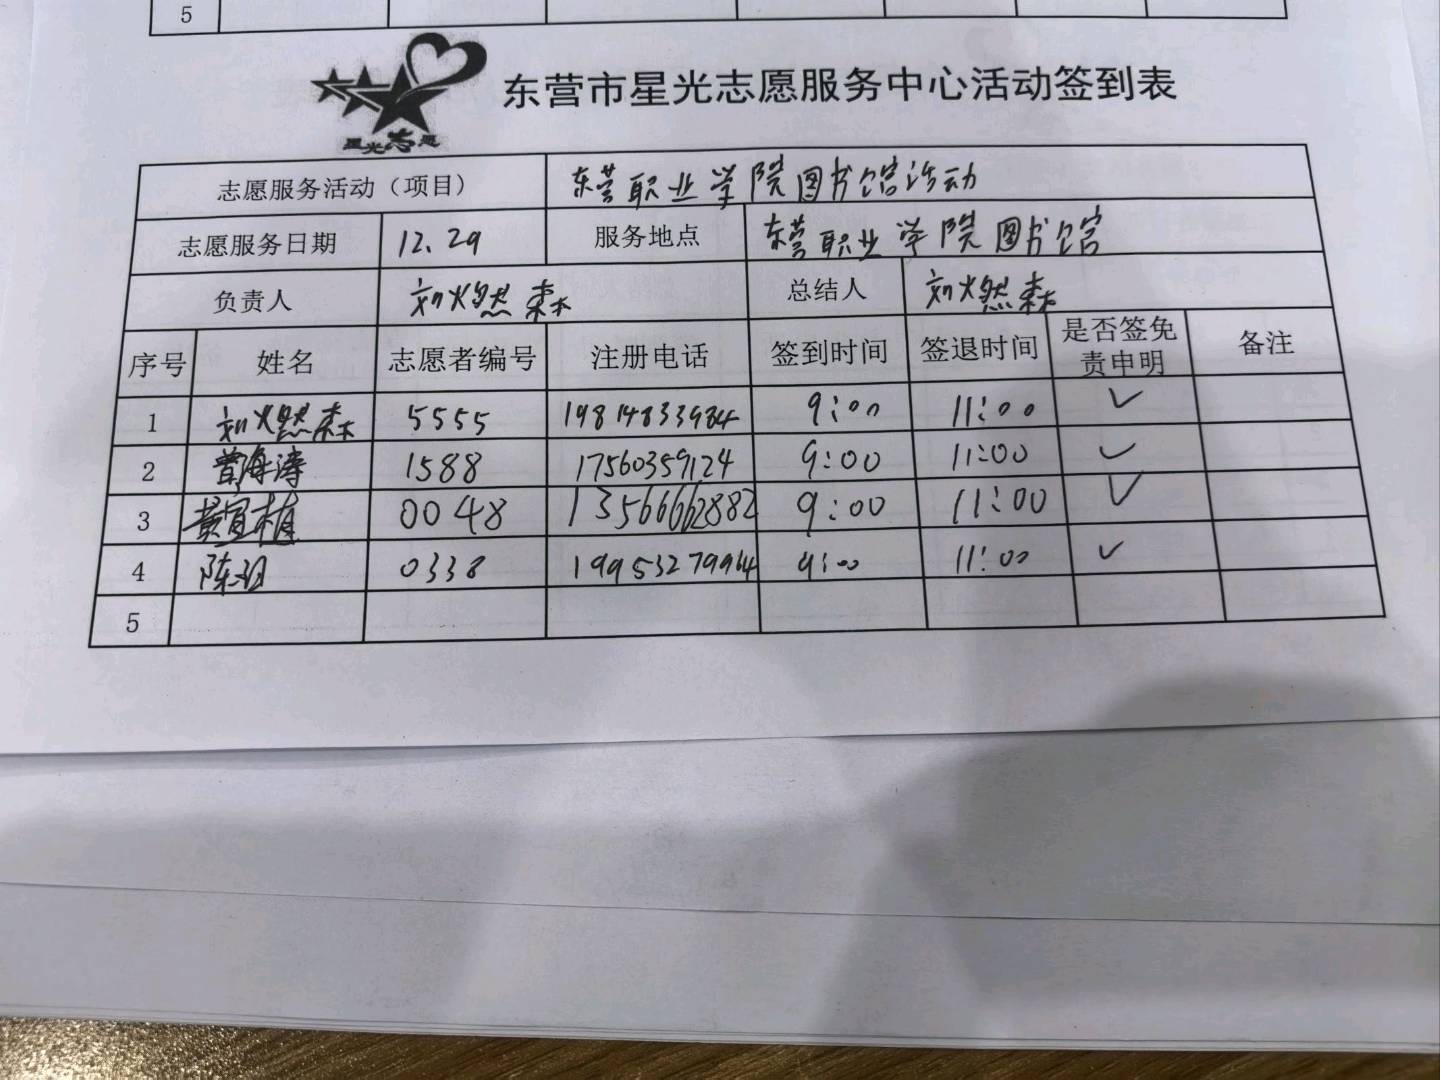 5
星光志愿
东营市星光志愿服务中心活动签到表
志愿服务活动（项目） 东营职业学院图书馆活动
志愿服务日期 12.29 服务地点 东营职业学院图书馆
负责人 刘燃森 总结人 刘燃森
序号 姓名 志愿者编号 注册电话 签到时间 签退时间 是否签免责申明 备注
1 刘燃森 5555 19814833984 9:00 11:00 ✓
2 曾海涛 1588 17560359124 9:00 11:00 ✓
3 黄宜植 0048 13566662882 9:00 11:00 ✓
4 陈 0338 19953279964 9:00 11:00 ✓
5